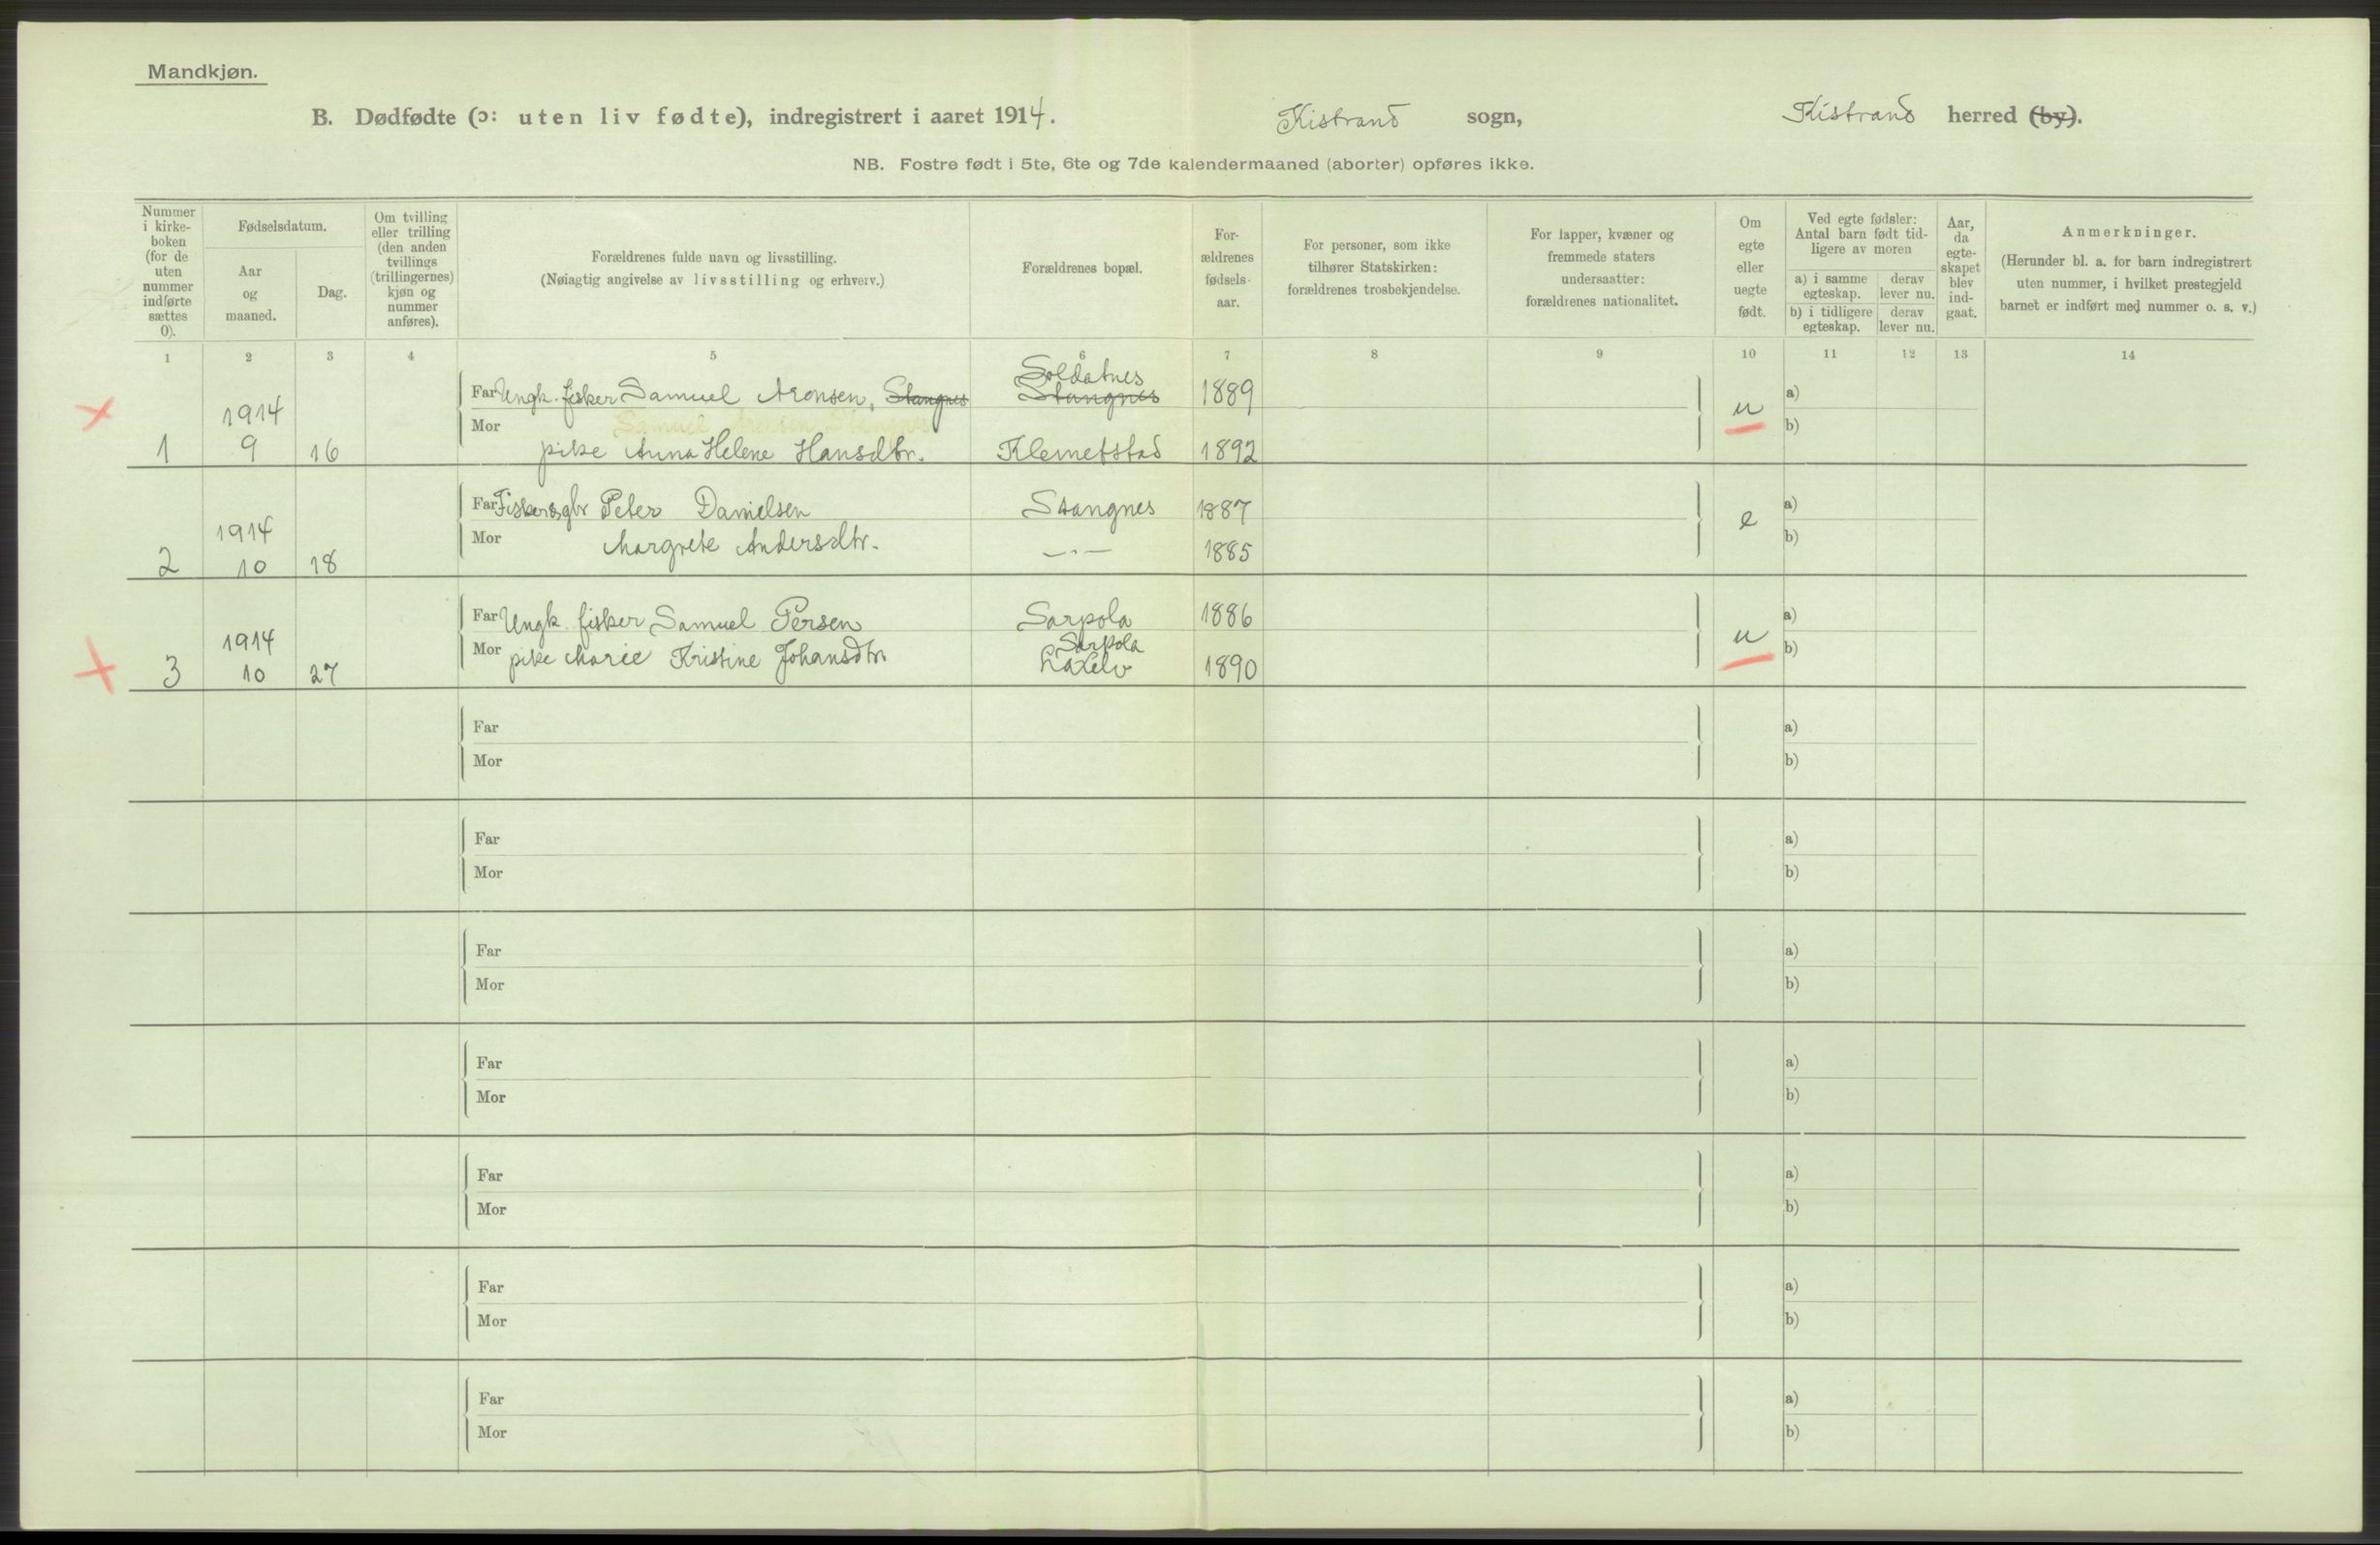 Mandkjøn.
B. Dødfødte (ɔ: uten liv fødte), indregistrert i aaret 1914. Kistrand sogn, Kistrand herred (by).
NB. Fostre født i 5te, 6te og 7de kalendermaaned (aborter) opføres ikke.
Nummer i kirke-boken (for de uten nummer indførte sættes 0).
Fødselsdatum.
Aar og maaned.
Dag.
Om tvilling eller trilling (den anden tvillings (trillingernes) kjøn og nummer anføres).
Forældrenes fulde navn og livsstilling.
(Nøiagtig angivelse av livsstilling og erhverv.)
Forældrenes bopæl.
For-ældrenes fødsels-aar.
For personer, som ikke tilhører Statskirken: forældrenes trosbekjendelse.
For lapper, kvæner og fremmede staters undersaatter: forældrenes nationalitet.
Om egte eller uegte født.
Ved egte fødsler: Antal barn født tid-ligere av moren
a) i samme egteskap. derav lever nu.
b) i tidligere egteskap. derav lever nu.
Aar, da egte-skapet blev ind-gaat.
Anmerkninger.
(Herunder bl. a. for barn indregistrert uten nummer, i hvilket prestegjeld barnet er indført med nummer o. s. v.)
1 2 3 4 5 6 7 8 9 10 11 12 13 14
Soldatnes
Far Ungk. fisker Samuel Aronsen, Stangnes Stangnes 1889 a)
1914 u
Mor Samuel Aronsen Stangnes b)
1 9 16 pike Anna Helene Hansdtr. Klemetstad 1892
Far Fisker &gbr Peter Danielsen Stangnes 1887 a)
1914 e
Mor Margrete Andersdtr. —„— 1885 b)
2 10 18
Far Ungk. fisker Samuel Persen Sarpola 1886 a)
1914 u
Sarpola
Mor pike Marie Kristine Johansdtr Laxelv 1890 b)
3 10 27
Far a)
Mor b)
Far a)
Mor b)
Far a)
Mor b)
Far a)
Mor b)
Far a)
Mor b)
Far a)
Mor b)
Far a)
Mor b)